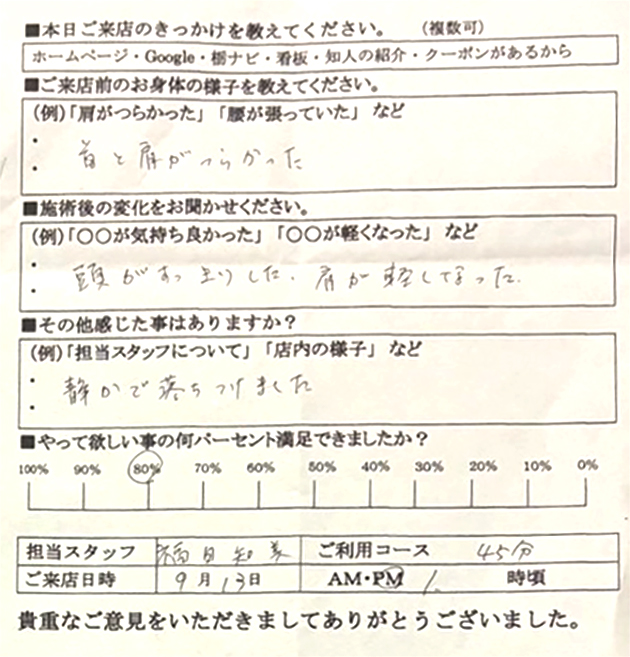 ■本日ご来店のきっかけを教えてください。 （複数可）
ホームページ・Google・栃ナビ・看板・知人の紹介・クーポンがあるから
■ご来店前のお身体の様子を教えてください。
(例)「肩がつらかった」「腰が張っていた」など
・
・ 首と肩がつらかった
■施術後の変化をお聞かせください。
(例)「○○が気持ち良かった」「○○が軽くなった」など
・
・ 頭がすっきりした。肩が軽くなった。
■その他感じた事はありますか？
(例)「担当スタッフについて」「店内の様子」など
・ 静かで落ちつけました
・
■やって欲しい事の何パーセント満足できましたか？
100% 90% 80% 70% 60% 50% 40% 30% 20% 10% 0%
担当スタッフ 福田知美 ご利用コース 45分
ご来店日時 9月13日 AM・PM 1. 時頃
貴重なご意見をいただきましてありがとうございました。